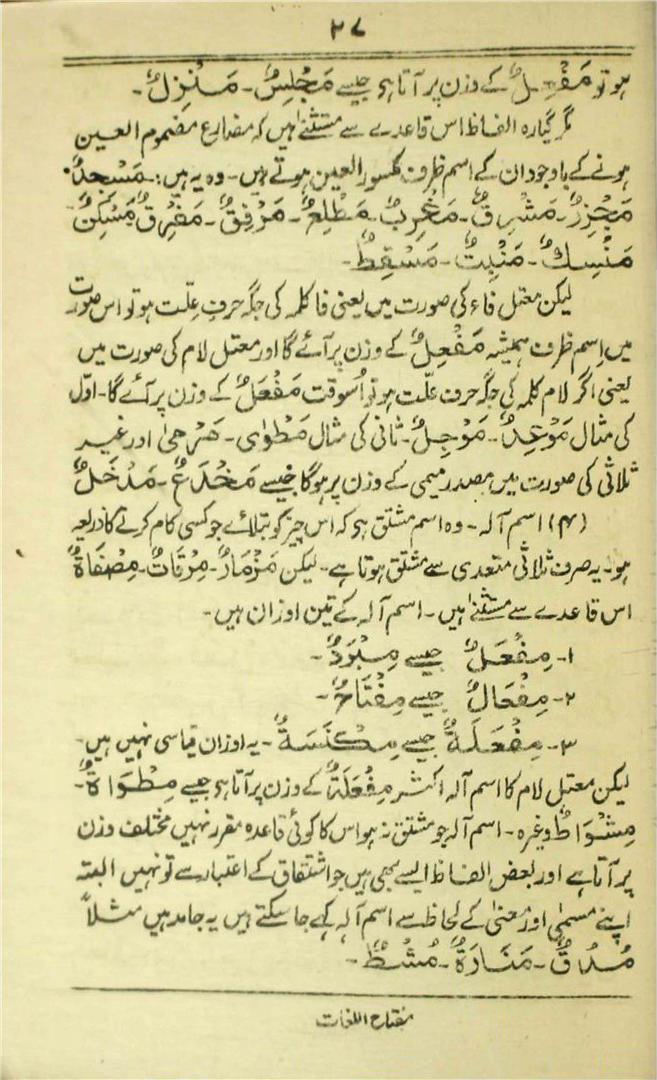 ۲۷
ہو تو مَفْعِلٌ کے وزن پر آتا ہی جیسے مَجْلِسٌ۔ مَنْزِلٌ۔
مگر گیارہ الفاظ اس قاعدے سے مستثنیٰ ہیں کہ مضارع مضموم العین
ہونے کے باوجود ان کے اسم ظرف مکسور العین ہوتے ہیں۔ وہ یہ ہیں:۔ مَسْجِدٌ۔
مَجْزِرٌ۔ مَشْرِقٌ۔ مَغْرِبٌ۔ مَطْلِعٌ۔ مَرْفِقٌ۔ مَفْرِقٌ۔ مَسْکِنٌ
مَنْسِكٌ۔ مَنْبِتٌ۔ مَسْقِطٌ۔
لیکن معتل فاء کی صورت میں یعنی فا کلمہ کی جگہ حرفِ علّت ہو تو اس صورت
میں اِسم ظرف ہمیشہ مَفْعِلٌ کے وزن پر آئے گا اور معتل لام کی صورت میں
یعنی اگر لام کلمہ کی جگہ حرف علّت ہو تو اُسوقت مَفْعَلٌ کے وزن پر آئے گا۔ اوّل
کی مثال مَوْعِدٌ۔ مَوْجِلٌ۔ ثانی کی مثال مَطْوٰی۔ مَرْمیٰ اور غیر
ثلاثی کی صورت میں مصدر میمی کے وزن پر ہوگا جیسے مَخْدَعٌ۔ مَدْخَلٌ
(۴) اسم آلہ۔ وہ اسم مشتق ہی کہ اس چیز کو بتلائے جو کسی کام کرنے کا ذریعہ
ہو۔ یہ صرف ثلاثی متعدی سے مشتق ہوتا ہے۔ لیکن مَزْمَارٌ۔ مِرْقَاتٌ۔ مِصْفَاۃٌ
اس قاعدے سے مستثنیٰ ہیں۔ اسم آلہ کے تین اوزان ہیں۔
۱۔ مِفْعَلٌ جیسے مِبْرَدٌ۔
۲۔ مِفْعَالٌ جیسے مِفْتَاحٌ۔
۳۔ مِفْعَلَةٌ جیسے مِکْنَسَةٌ۔ یہ اوزان قیاسی نہیں ہیں۔
لیکن معتل لام کا اسم آلہ اکثر مِفْعَلَةٌ کے وزن پر آتا ہی جیسے مِطْوَاۃٌ۔
مِشْوَاطٌ وغیرہ۔ اسم آلہ جو مشتق نہ ہو اس کا کوئی قاعدہ مقرر نہیں مختلف وزن
پر آتا ہے اور بعض الفاظ ایسے بھی ہیں جو اشتقاق کے اعتبار سے تو نہیں البتہ
اپنے مسمّٰی اور معنیٰ کے لحاظ سے اسم آلہ کہے جا سکتے ہیں یہ جامد ہیں مثلاً
مُدُقٌّ۔ مَنَارَةٌ۔ مُشْطٌ۔
مفتاح اللغات